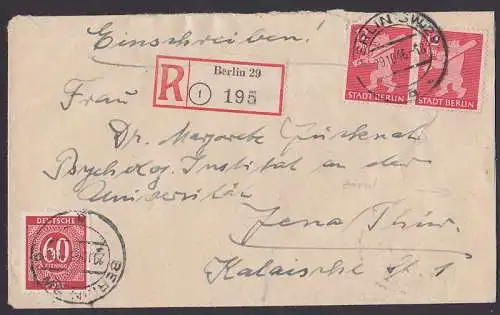 Einschreiben!
BERLIN SW 29
STADT BERLIN STADT BERLIN
R Berlin 29
1 195
Frau
Dr. Margarete
Psycholog. Institut an der
Universität
Jena/Thür.
Kalaische St. 1
DEUTSCHE
60
PFENNIG
POST
BERLIN